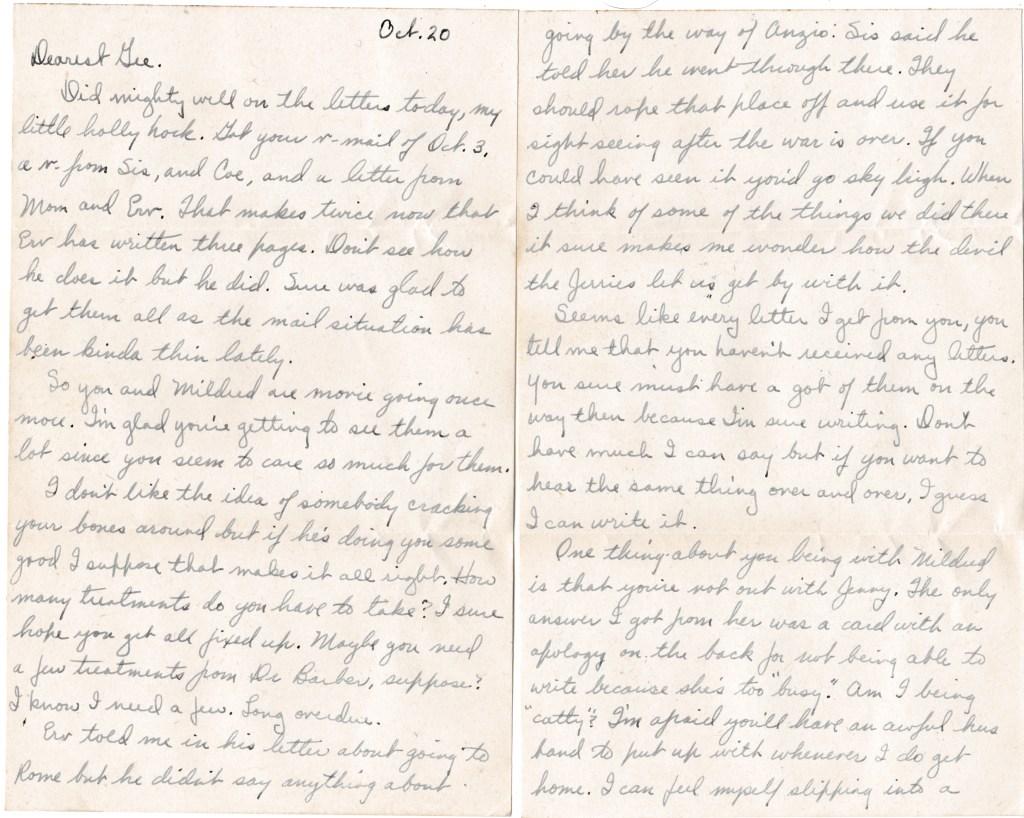 Oct. 20
Dearest Gee.
Did mighty well on the letters today, my
little holly hock. Got your v-mail of Oct. 3,
a v- from Sis, and Coe, and a letter from
Mom and Erv. That makes twice now that
Erv has written three pages. Don't see how
he does it but he did. Sure was glad to
get them all as the mail situation has
been kinda thin lately.
So you and Mildred are movie going once
more. I'm glad you're getting to see them a
lot since you seem to care so much for them.
I don't like the idea of somebody cracking
your bones around but if he's doing you some
good I suppose that makes it all right. How
many treatments do you have to take? I sure
hope you get all fixed up. Maybe you need
a few treatments from Dr Barber, suppose?
I know I need a few. Long overdue.
Erv told me in his letter about going to
Rome but he didn't say anything about
going by the way of Anzio. Sis said he
told her he went through there. They
should rope that place off and use it for
sight seeing after the war is over. If you
could have seen it you'd go sky high. When
I think of some of the things we did there
it sure makes me wonder how the devil
the Jerries let us get by with it.
Seems like every letter I get from you, you
tell me that you haven't received any letters.
You sure must have a got of them on the
way then because I'm sure writing. Don't
have much I can say but if you want to
hear the same thing over and over, I guess
I can write it.
One thing about you being with Mildred
is that you're not out with Jenny. The only
answer I got from her was a card with an
apology on the back for not being able to
write because she's too "busy". Am I being
"catty"? I'm afraid you'll have an awful hus
band to put up with whenever I do get
home. I can feel myself slipping into a